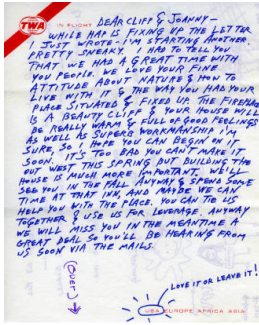 TWA
IN FLIGHT
DEAR CLIFF & JOANNY-
WHILE HAP IS FIXING UP THE LETTER
I JUST WROTE- I'M STARTING ANOTHER.
PRETTY SNEAKY. I HAD TO TELL YOU
THAT WE HAD A GREAT TIME WITH
YOU PEOPLE. WE LOVE YOUR FINE
ATTITUDE ABOUT NATURE & HOW TO
LIVE WITH IT & THE WAY YOU HAD YOUR
PLACE SITUATED & FIXED UP. THE FIREPLACE
IS A BEAUTY CLIFF & YOUR HOUSE WILL
BE REALLY WARM & FULL OF GOOD FEELINGS
AS WELL AS SUPERB WORKMANSHIP I'M
SURE, SO I HOPE YOU CAN BEGIN ON IT
SOON. IT'S TOO BAD YOU CAN'T MAKE IT
OUT WEST THIS SPRING BUT BUILDING THE
HOUSE IS MUCH MORE IMPORTANT. WE'LL
SEE YOU IN THE FALL ANYWAY & SPEND SOME
TIME AT THAT INN, AND MAYBE WE CAN
HELP YOU BUY THE PLACE. YOU CAN TIE US
TOGETHER & USE US FOR LEVERAGE. ANYWAY
WE WILL MISS YOU IN THE MEANTIME A
GREAT DEAL SO YOU'LL BE HEARING FROM
US SOON VIA THE MAILS.
(OVER)
LOVE IT OR LEAVE IT!
USA EUROPE AFRICA ASIA